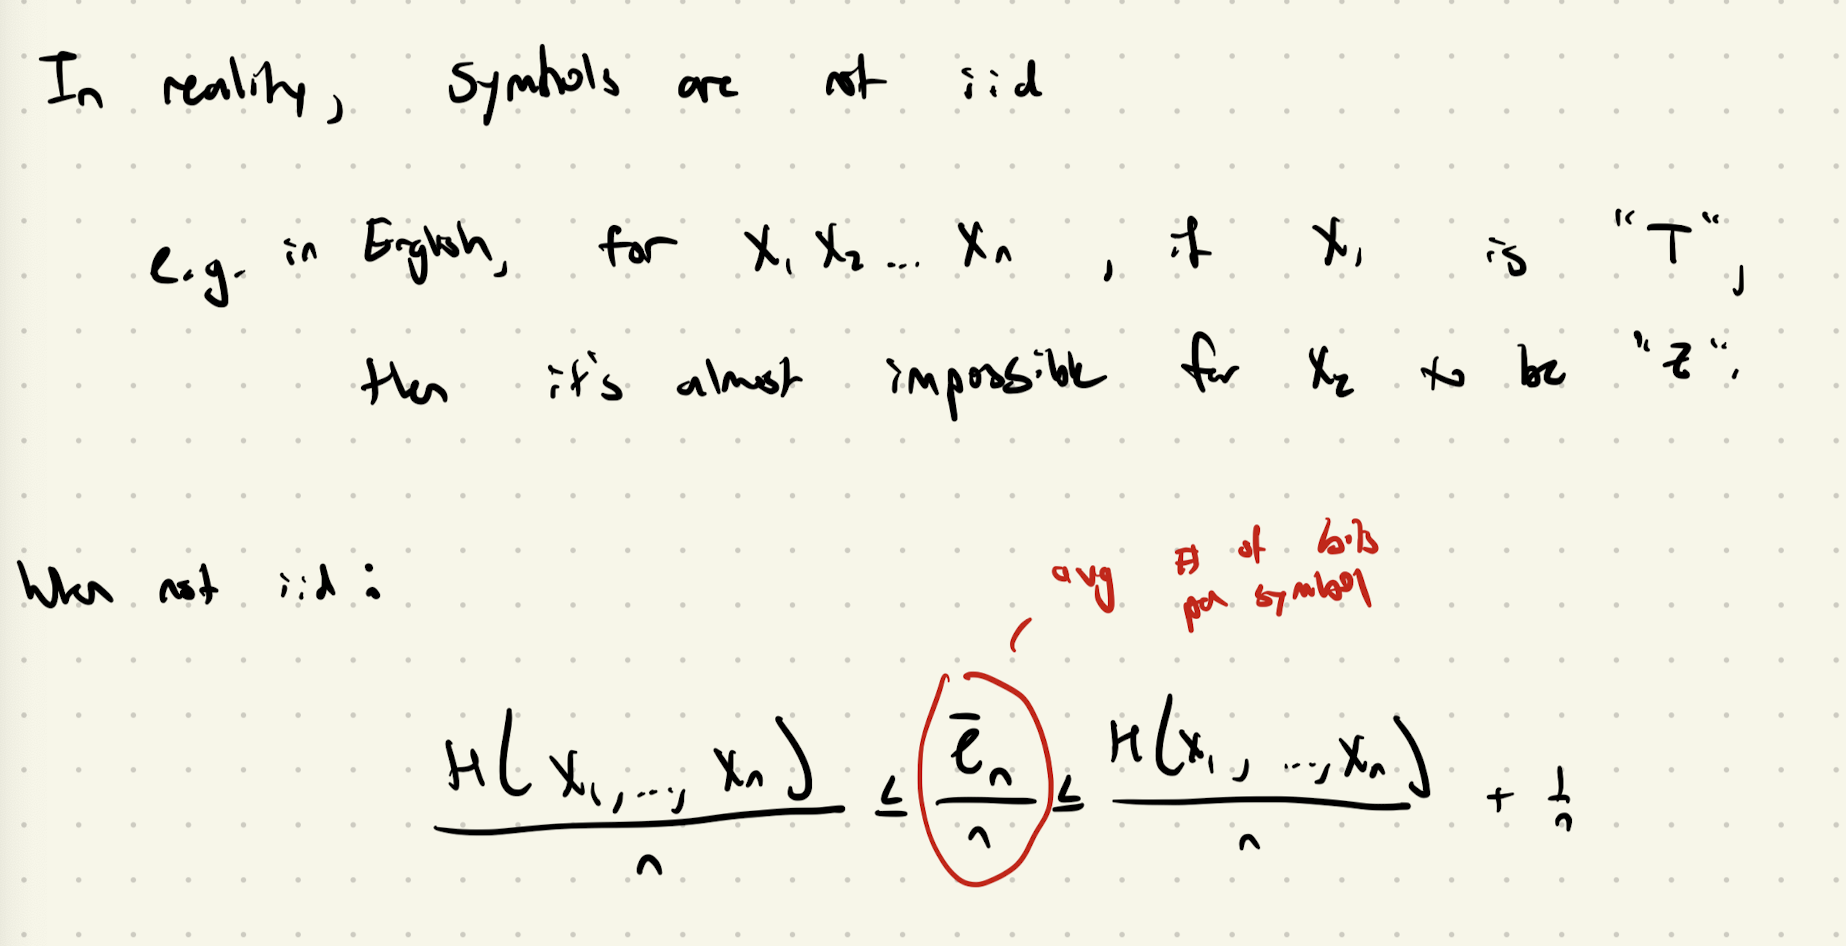 In reality, symbols are not iid
e.g. in English, for X₁ X₂ ... Xₙ, if X₁ is "T",
then it's almost impossible for X₂ to be "Z".
avg # of bits
per symbol
When not iid:
H(X₁, ..., Xₙ)/n ≤ l̄ₙ/n ≤ H(X₁, ..., Xₙ)/n + 1/n